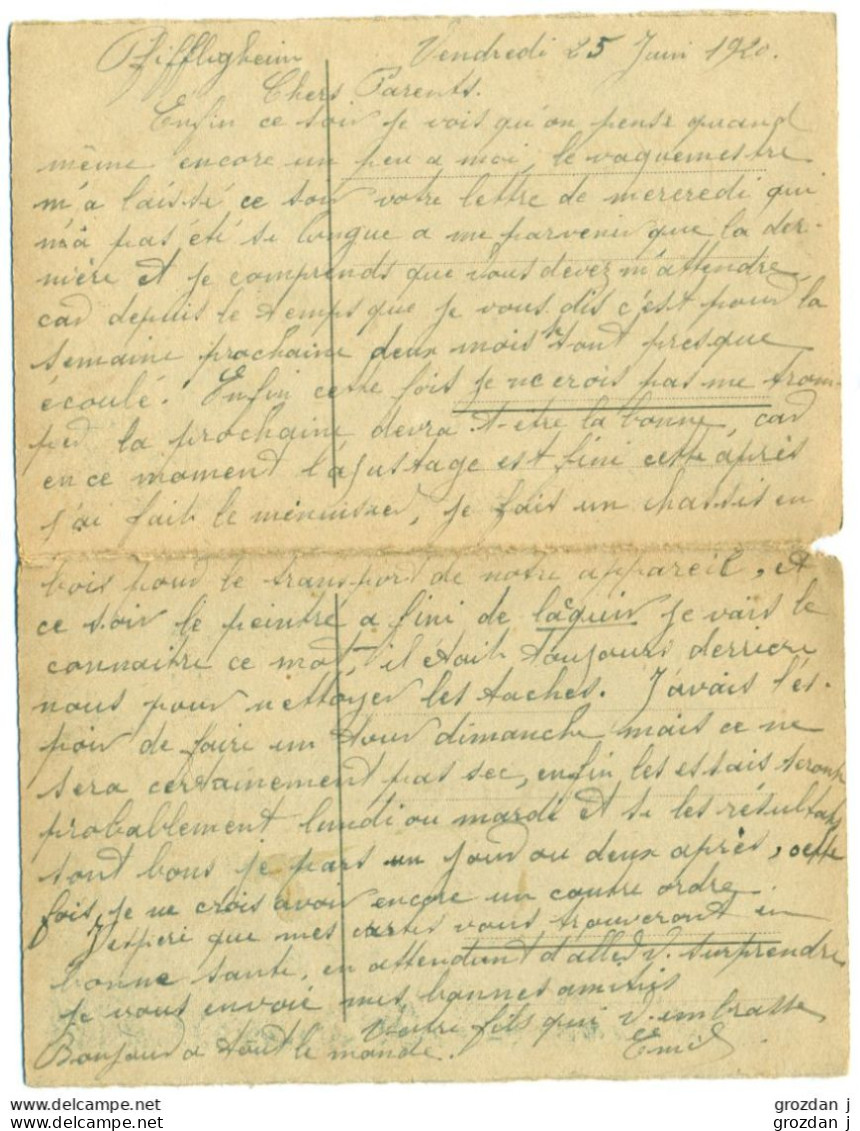 Pfiffligheim Vendredi 25 Juin 1920.
Chers Parents.
Enfin ce soir je vois qu'on pense quand
même encore un peu a moi, le vaguemestre
m'a laissé ce soir votre lettre de mercredi qui
n'a pas été si longue a me parvenir que la der-
nière et je comprends que vous devez m'attendre
car depuis le temps que je vous dis c'est pour la
semaine prochaine deux mois sont presque
écoulé. Enfin cette fois je ne crois pas me trom-
per la prochaine devra t-être la bonne, car
en ce moment l'ajustage est fini cette après
j'ai fait le menuisier, je fais un chassis en
bois pour le transport de notre appareil, et
ce soir le peintre a fini de laquer je vais le
connaitre ce mot, il était toujours derriere
nous pour nettoyer les taches. J'avais l'es-
poir de faire un tour dimanche mais ce ne
sera certainement pas sec, enfin les essais seront
probablement lundi ou mardi et si les résultats
sont bons je pars un jour ou deux après, cette
fois je ne crois avoir encore un contre ordre.
J'espere que mes cartes vous trouveront en
bonne sante, en attendant d'aller v. surprendre
je vous envoie mes bonnes amities
Votre fils qui v. embrasse
Bonjour a tout le monde. Emil
grozdan j
grozdan j